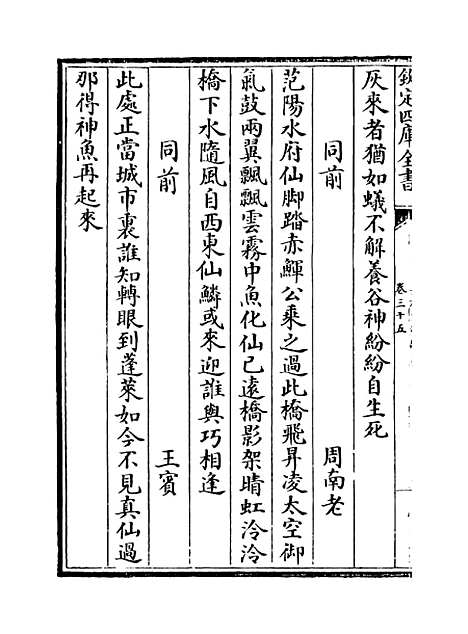 欽定四庫全書
卷三十五
灰來者猶如蟻不解養谷神紛紛自生死
同前 周南老
范陽水府仙脚踏赤鯶公乘之過此橋飛昇凌太空御
氣鼓兩翼飄飄雲霧中魚化仙已遠橋影架晴虹泠泠
橋下水隨風自西東仙鱗或來迎誰與巧相逢
同前 王賓
此處正當城市裏誰知轉眼到蓬萊如今不見真仙過
那得神魚再起來